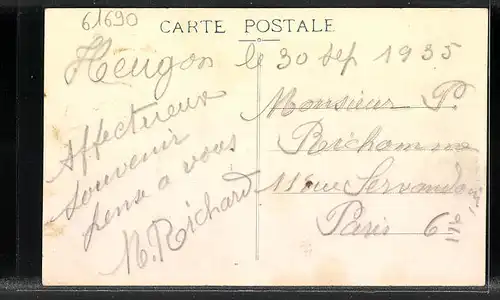 61690
CARTE POSTALE
Heugon le 30 sep 1935
Affectueux
souvenir
pense a vous
M. Richard
Monsieur P.
Richomme
11 rue Servandoni
Paris 6